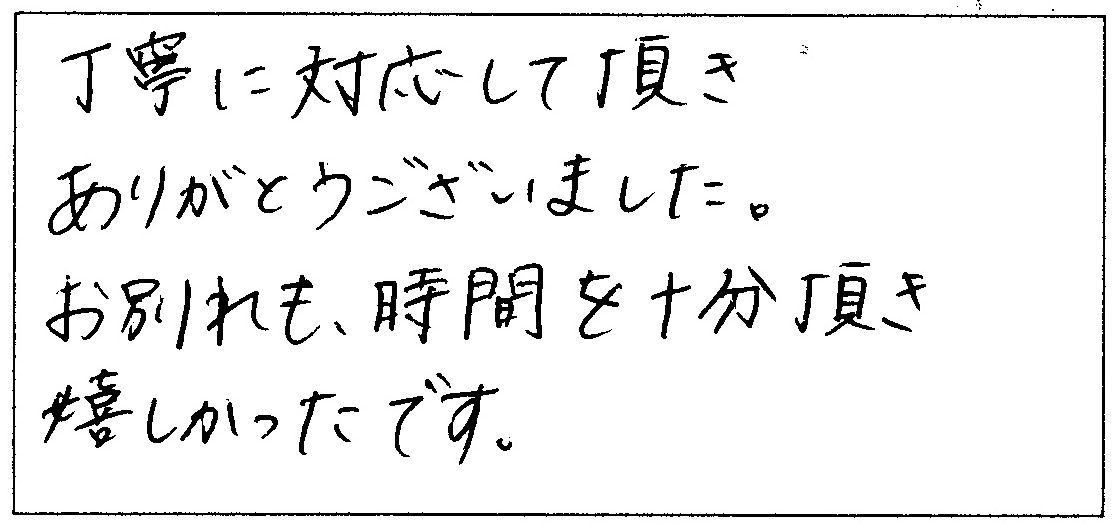 丁寧に対応して頂き
ありがとうございました。
お別れも、時間を十分頂き
嬉しかったです。